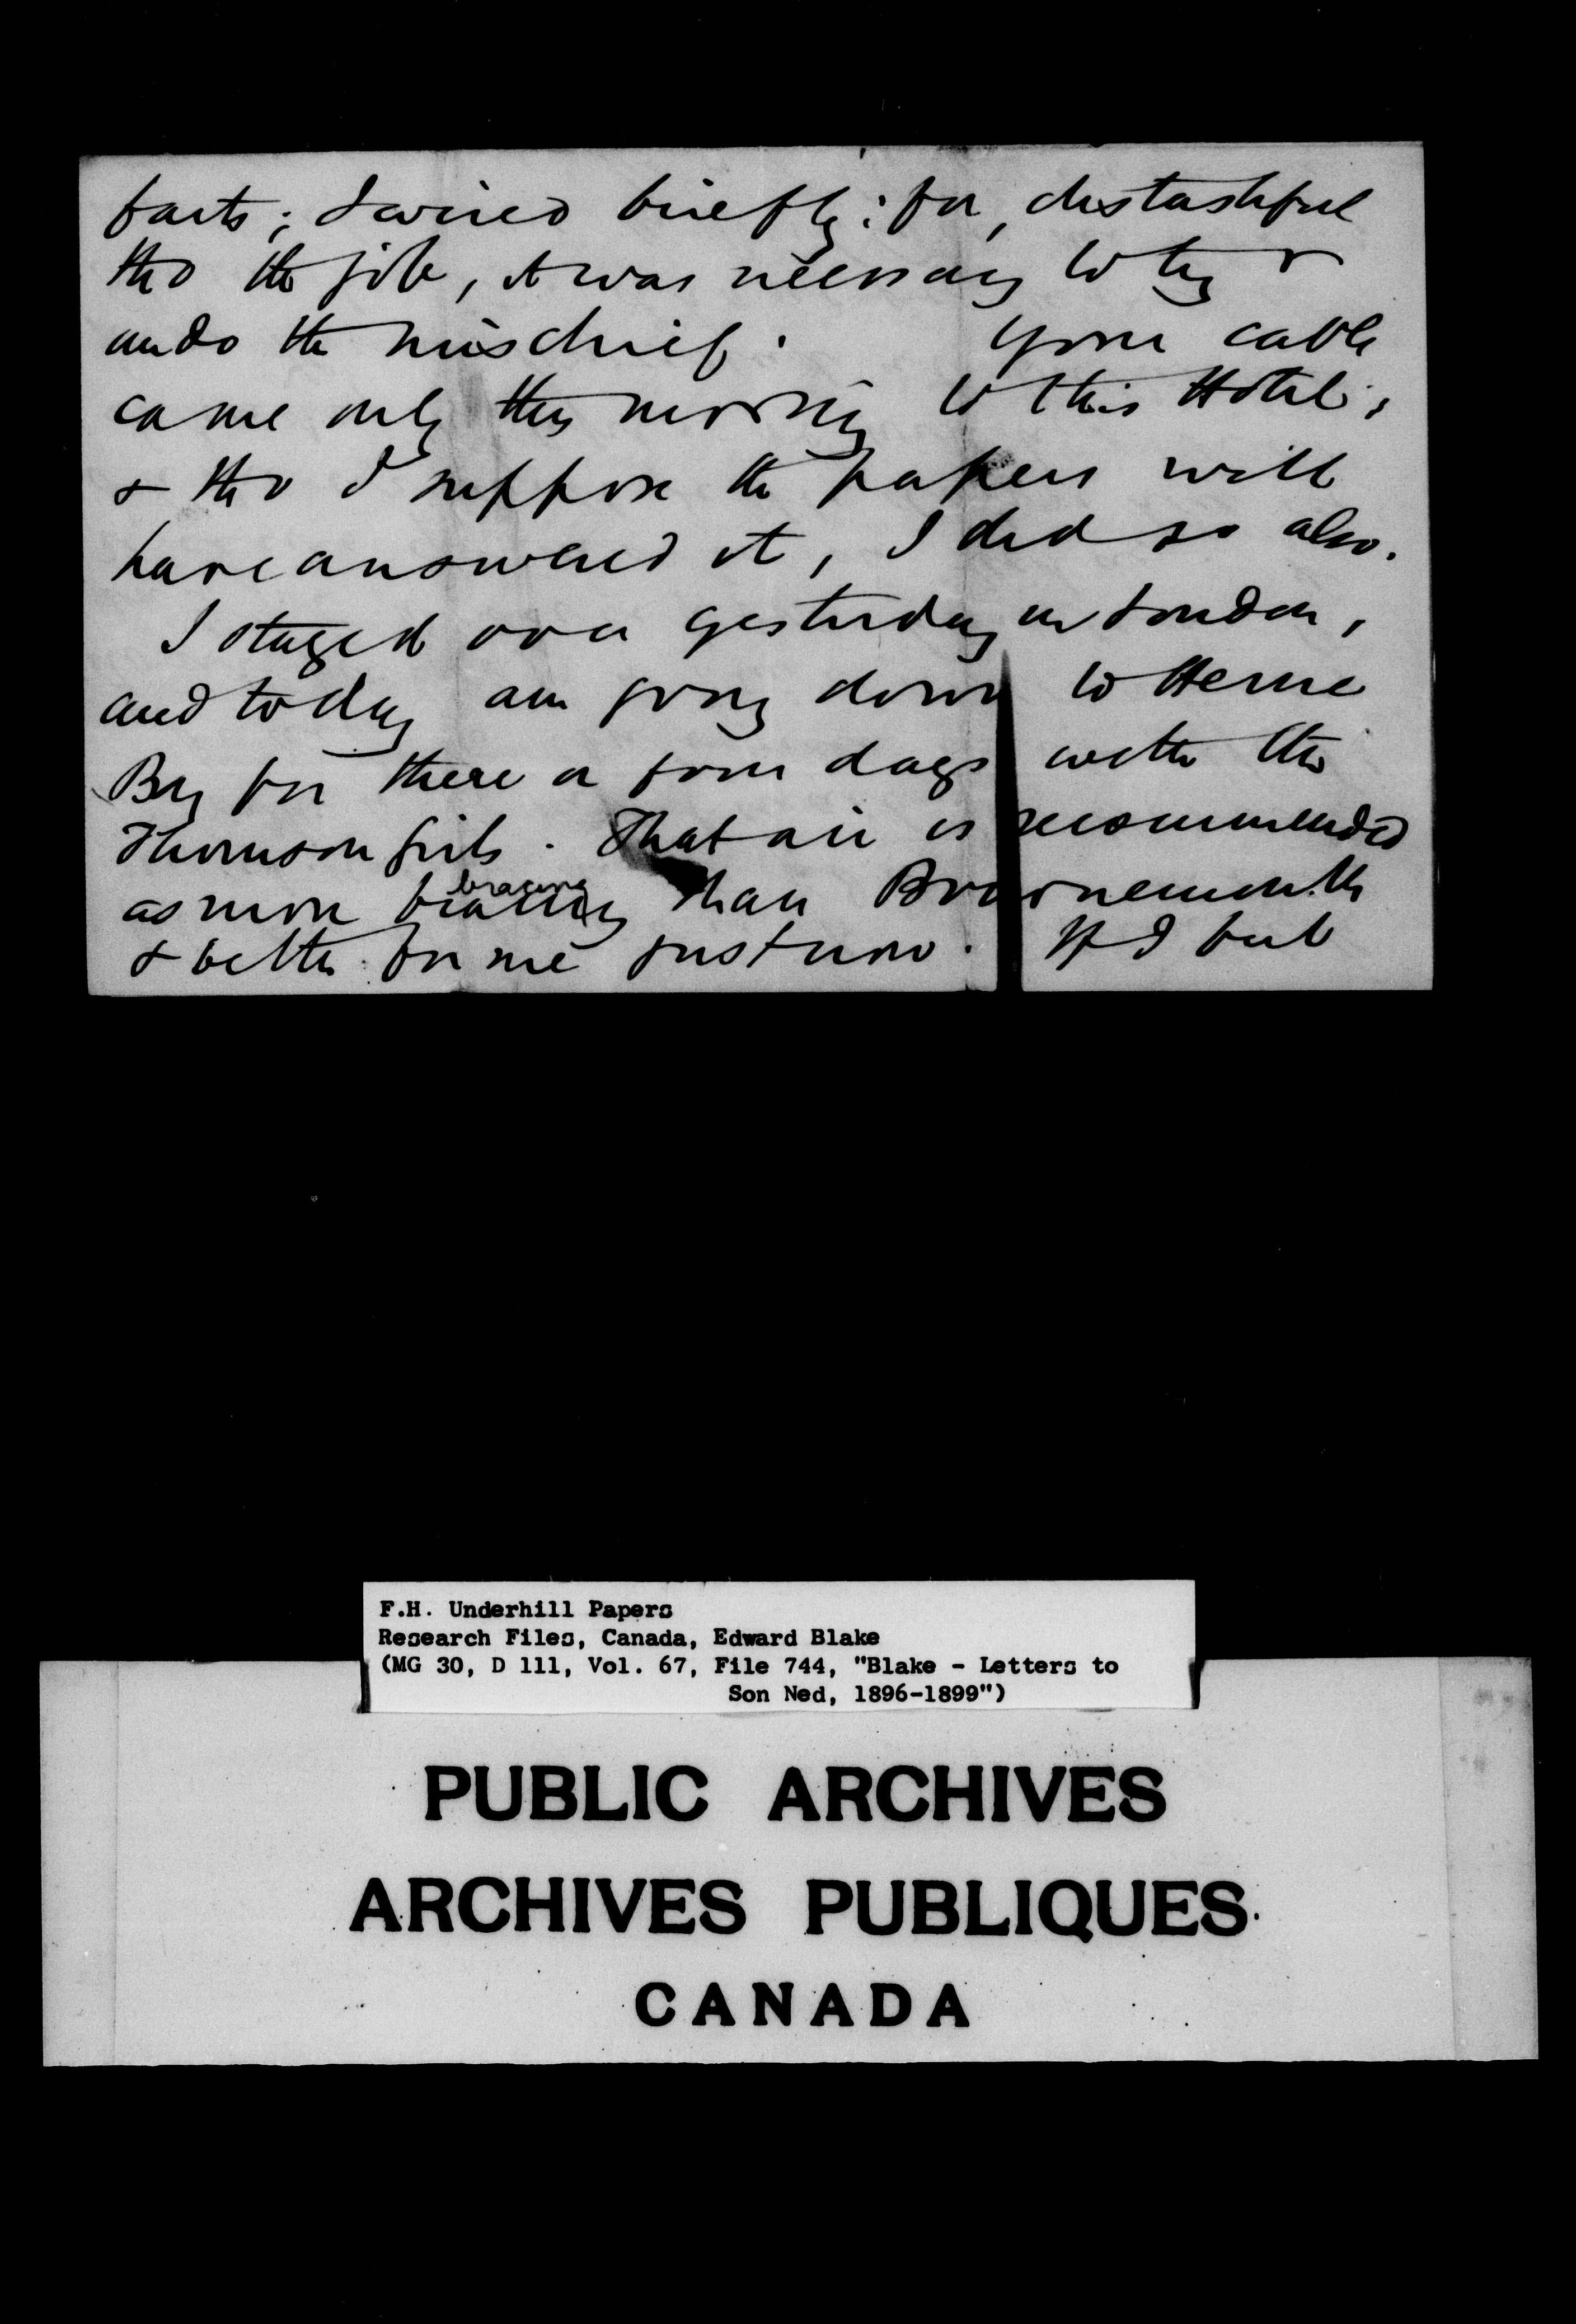 facts; I wired briefly: for, distasteful
tho the job, it was necessary to try &
undo the mischief. Your cable
came only this morning to this Hotel;
& tho I suppose the papers will
have answered it, I did so also.
I stayed over yesterday in London,
and today am going down to Herne
Bay for three or four days with the
Thomson girls. That air is recommended
as more bracing bracing than Bournemouth
& better for me just now. If I feel
F.H. Underhill Papers
Research Files, Canada, Edward Blake
(MG 30, D 111, Vol. 67, File 744, "Blake - Letters to
Son Ned, 1896-1899")
PUBLIC ARCHIVES
ARCHIVES PUBLIQUES
CANADA